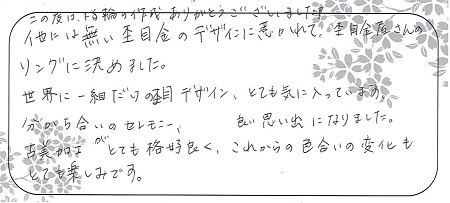 この度は、指輪の作成ありがとうございました。
他には無い杢目金のデザインに惹かれて、杢目金屋さんの
リングに決めました。
世界に一組だけの杢目デザイン、とても気に入っています。
分かち合いのセレモニー、　良い思い出になりました。
古美加工がとても格好良く、これからの色合いの変化も
とても楽しみです。